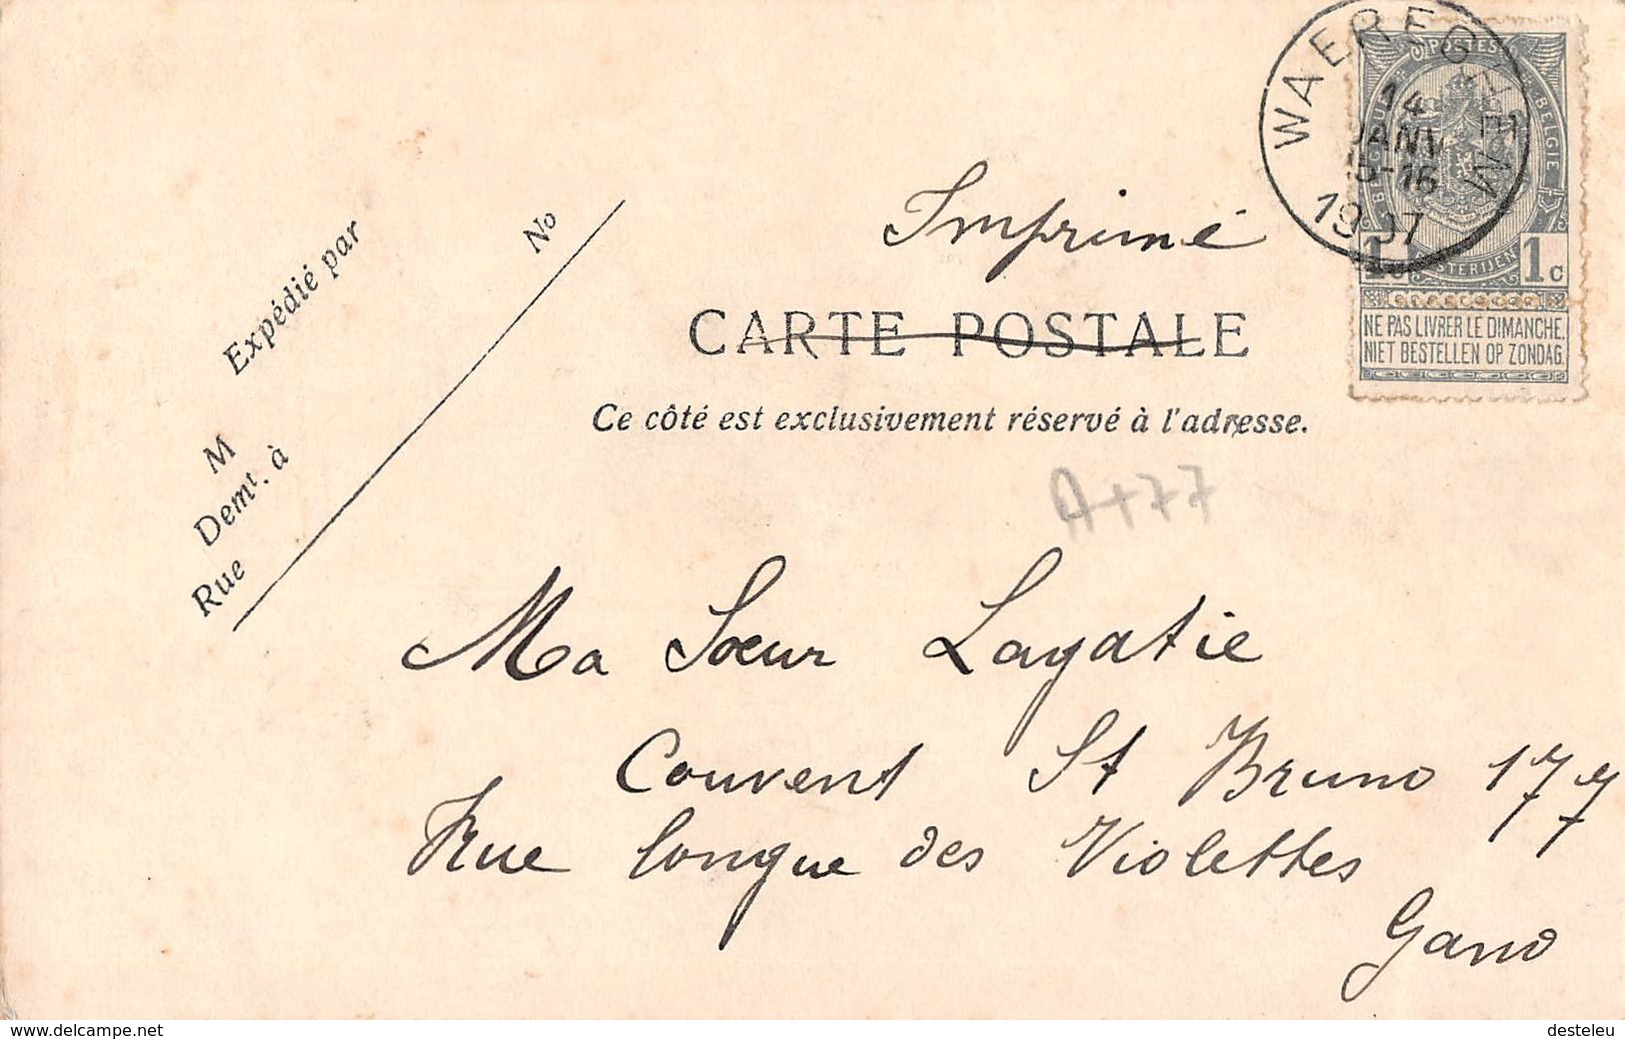 Imprimé
CARTE POSTALE
Ce côté est exclusivement réservé à l'adresse.
Expédié par
No
M
Demt. à
Rue
WAEREGHEM
14
JANV
15-16
1907
POSTES
BELGIQUE
BELGIE
POSTERIJEN
1 1c
NE PAS LIVRER LE DIMANCHE.
NIET BESTELLEN OP ZONDAG.
A+77
Ma Sœur Lagatie
Couvent St Bruno 177
Rue longue des Violettes
Gand
www.delcampe.net
desteleu